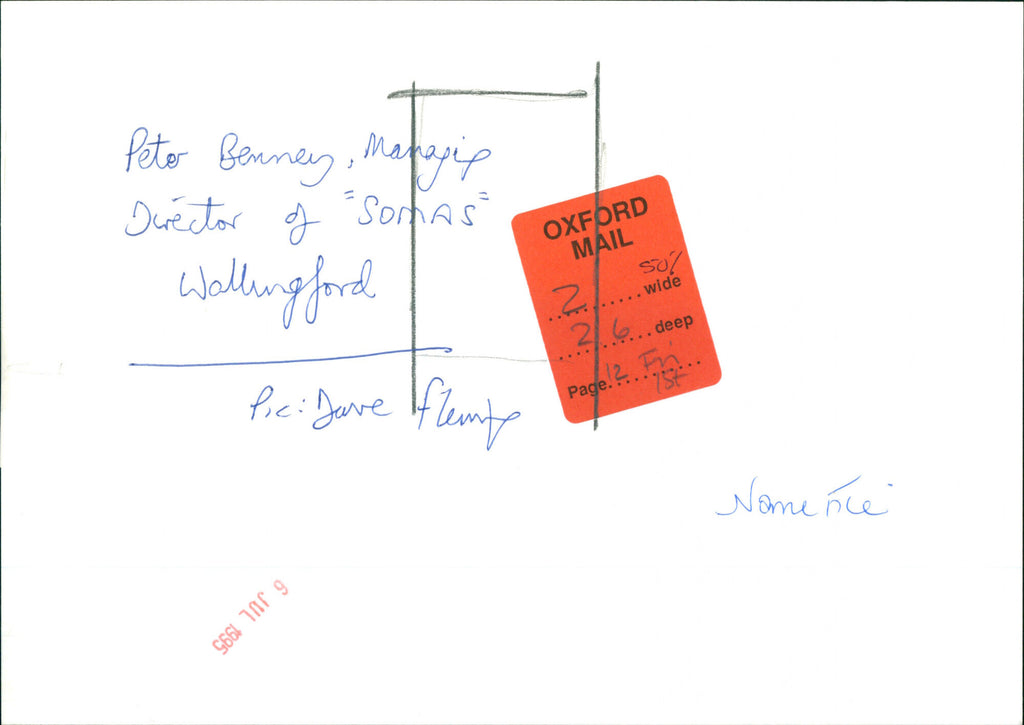 Peter Benney, Managing
Director of "SOMAS"
Wallingford
Pic: Dave Fleming
OXFORD
MAIL
50%
2 ......... wide
26 ... deep
Page 12 Fri
1st
Name File
6 JUL 1995